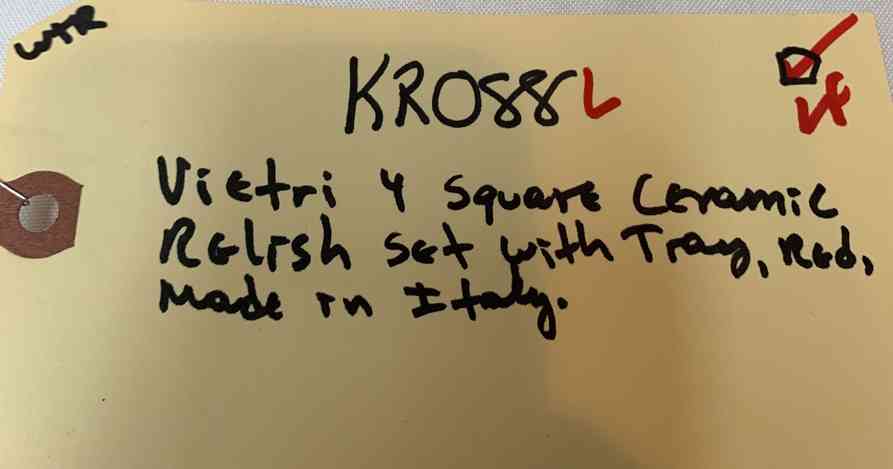 WTR
KRO88L
Vietri 4 Square Ceramic
Relish set with Tray, Red,
Made in Italy.